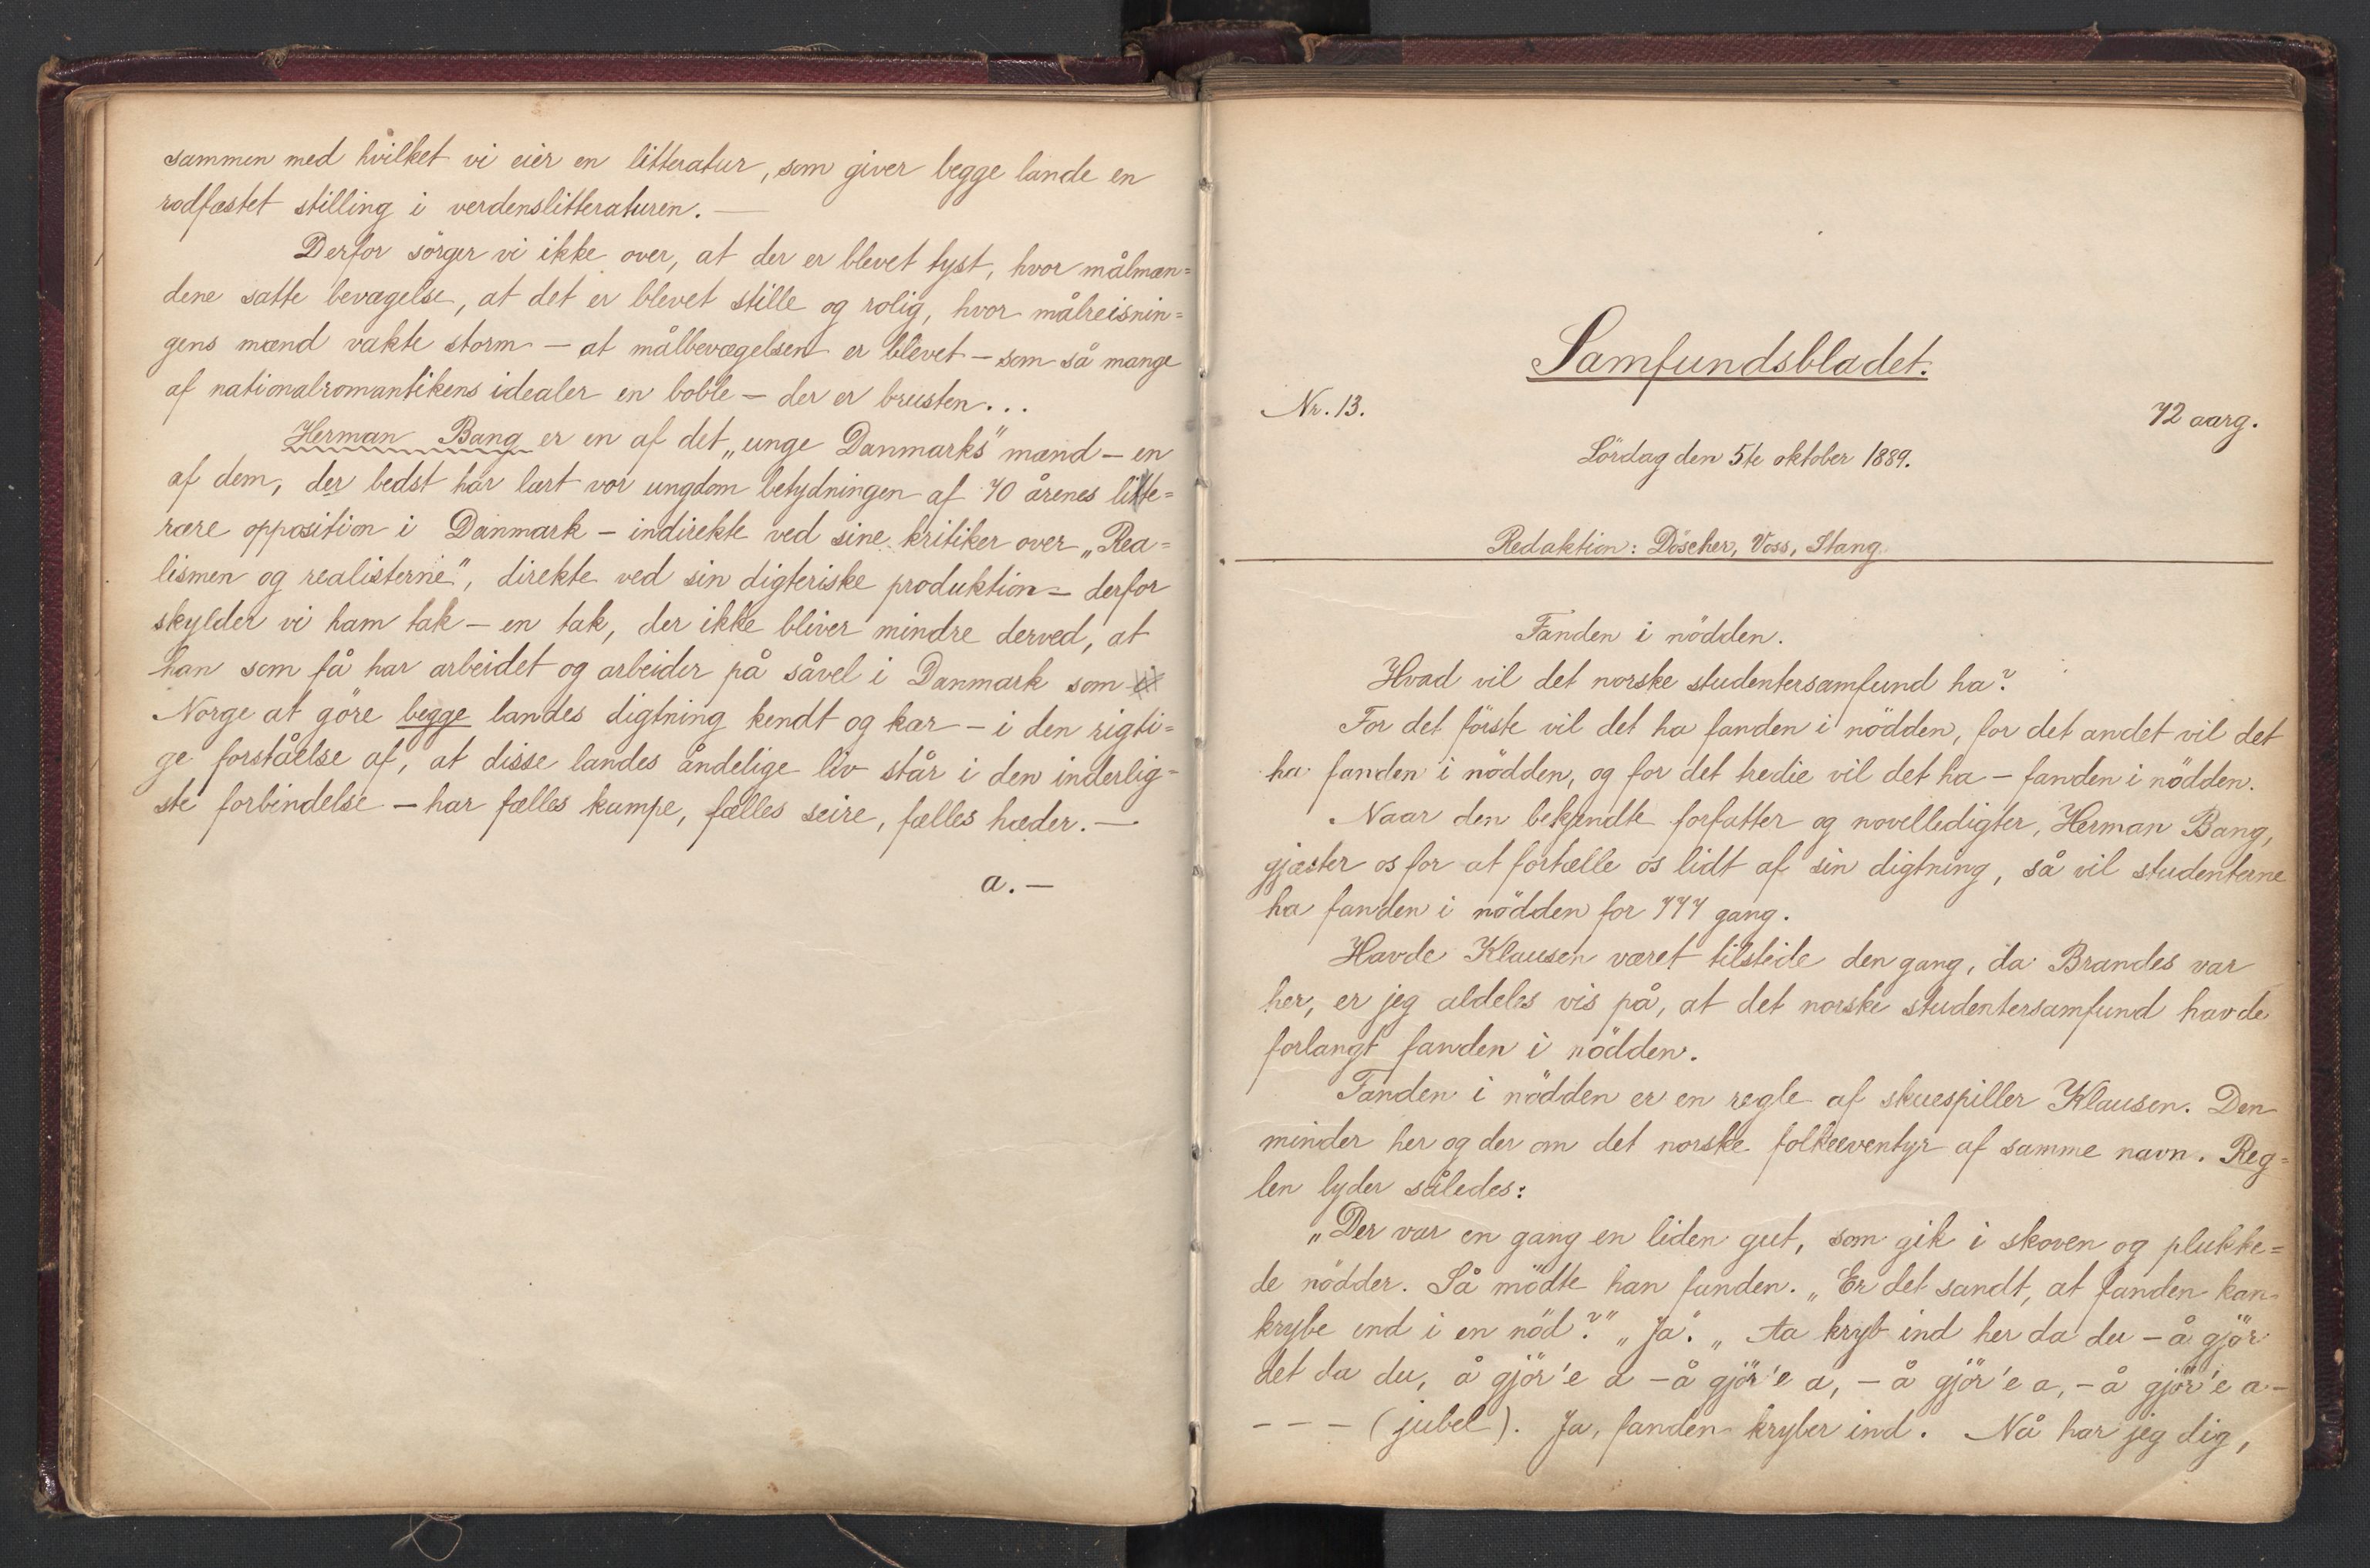 sammen med hvilket vi eier en litteratur, som giver begge lande en
rodfæstet stilling i verdenslitteraturen. —
Derfor sörger vi ikke over, at der er blevet tyst, hvor målmæn=
dene satte bevægelse, at det er blevet stille og rolig, hvor målreisnin=
gens mænd vakte storm — at målbevægelsen er blevet — som så mange
af nationalromantikens idealer en boble — der er brusten...
Herman Bang er en af det „unge Danmarks" mænd — en
af dem, der bedst har lært vor ungdom betydningen af 70 årenes litte=
rære opposition i Danmark — indirekte ved sine kritiker over „Rea=
lismen og realisterne", direkte ved sin digteriske produktion — derfor
skylder vi ham tak — en tak, der ikke bliver mindre derved, at
han som få har arbeidet og arbeider på såvel i Danmark som i
Norge at göre begge landes digtning kendt og kær — i den rigti=
ge forståelse af, at disse landes åndelige liv står i den inderlig=
ste forbindelse — har fælles kampe, fælles seire, fælles hæder. —
a. —
Samfundsbladet.
Nr. 13.
72 aarg.
Lördag den 5te oktober 1889.
Redaktion: Döscher, Voss, Stang.
Fanden i nödden.
Hvad vil det norske studentersamfund ha?
For det förste vil det ha fanden i nödden, for det andet vil det
ha fanden i nödden, og for det tredie vil det ha — fanden i nödden.
Naar den bekjendte forfatter og novelledigter, Herman Bang,
gjæster os for at fortælle os lidt af sin digtning, så vil studenterne
ha fanden i nödden for 777 gang.
Havde Klausen været tilstede den gang, da Brandes var
her, er jeg aldeles vis på, at det norske studentersamfund havde
forlangt fanden i nödden.
Fanden i nödden er en regle af skuespiller Klausen. Den
minder her og der om det norske folkeeventyr af samme navn. Reg=
len lyder således:
„Der var en gang en liden gut, som gik i skoven og plukke=
de nödder. Så mödte han fanden. „Er det sandt, at fanden kan
krybe ind i en nöd?" „Ja". „Aa kryb ind her da du — å gjör
det da du, å gjör'e a — å gjör'e a, — å gjör'e a, — å gjör'e a —
— — — (jubel). Ja, fanden kryber ind. Nå har jeg dig,